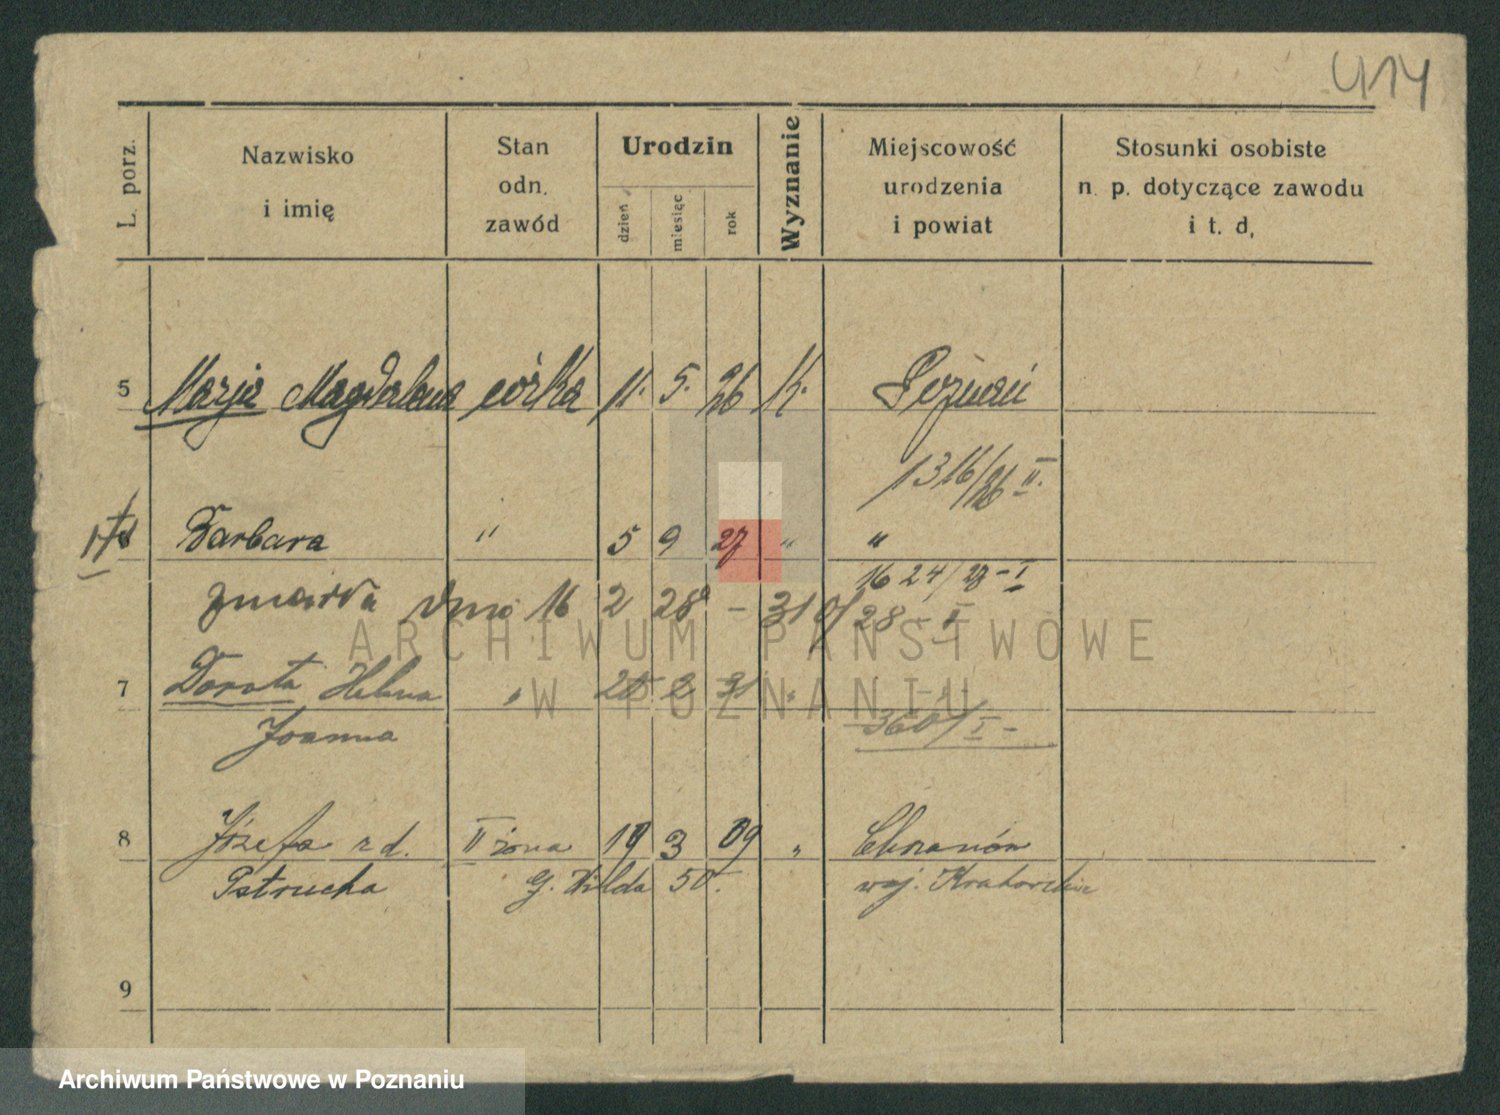 414
L. porz. Nazwisko i imię Stan odn. zawód Urodzin dzień miesiąc rok Wyznanie Miejscowość urodzenia i powiat Stosunki osobiste n. p. dotyczące zawodu i t. d.
5 Marja Magdalena córka 11. 5. 26 K. Poznań
1316/26 II.
Barbara " 5 9 27 " "
1624/27 - I
zmarła dnia 16 2 28 - 310/28 - II
ARCHIWUM PAŃSTWOWE
7 Dorota Helena " 2 31 "
W POZNANIU
Joanna 360/I -
8 Józefa rd. II żona 19 3 09 " Chrzanów
Pstrucha G. Wilda 50. woj. Krakowskie
9
Archiwum Państwowe w Poznaniu